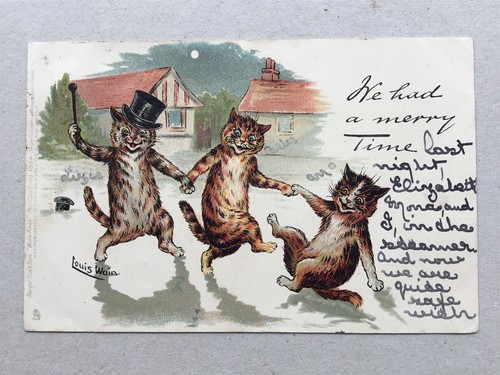 We had
a merry
Time last
night,
Elizabeth
Mona, and
I, in the
And now
we are
quide
safe
with
Lizzie
Louis Wain